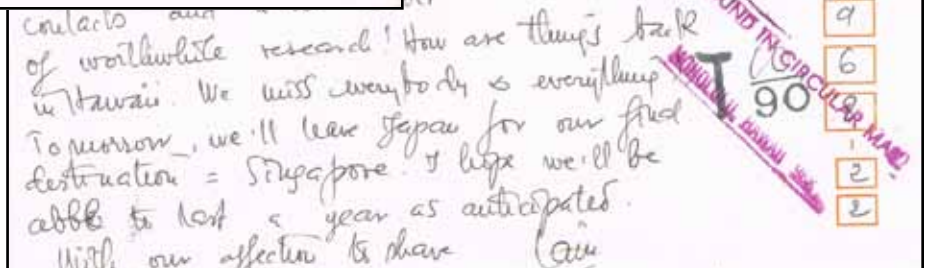 contacts and a
of worthwhile research! How are things back
in Hawaii. We miss everybody & everything
Tomorrow, we'll leave Japan for our final
destination = Singapore. I hope we'll be
abble to last a year as anticipated.
With our affection to share
T 90
FOUND IN CIRCULAR MAIL
HONOLULU, HAWAII
9
6
8
1
2
2